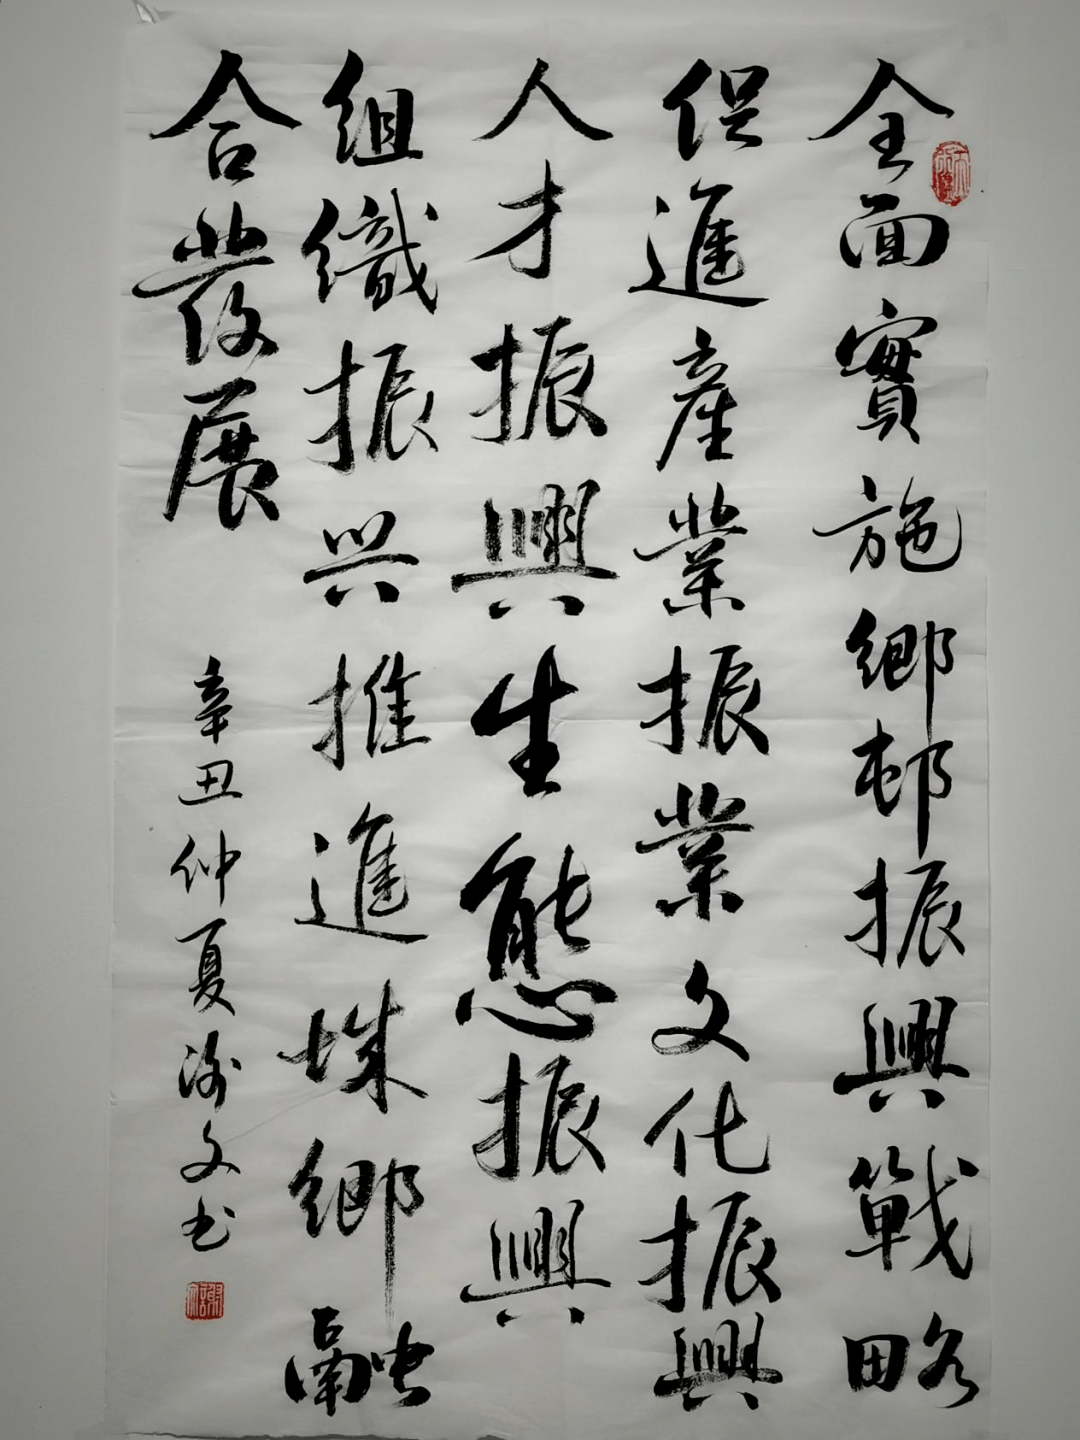 全面實施鄉邨振興戰略
促進產業振業文化振興
人才振興生態振興
組織振兴推進城鄉融
合發展
辛丑仲夏谢文书